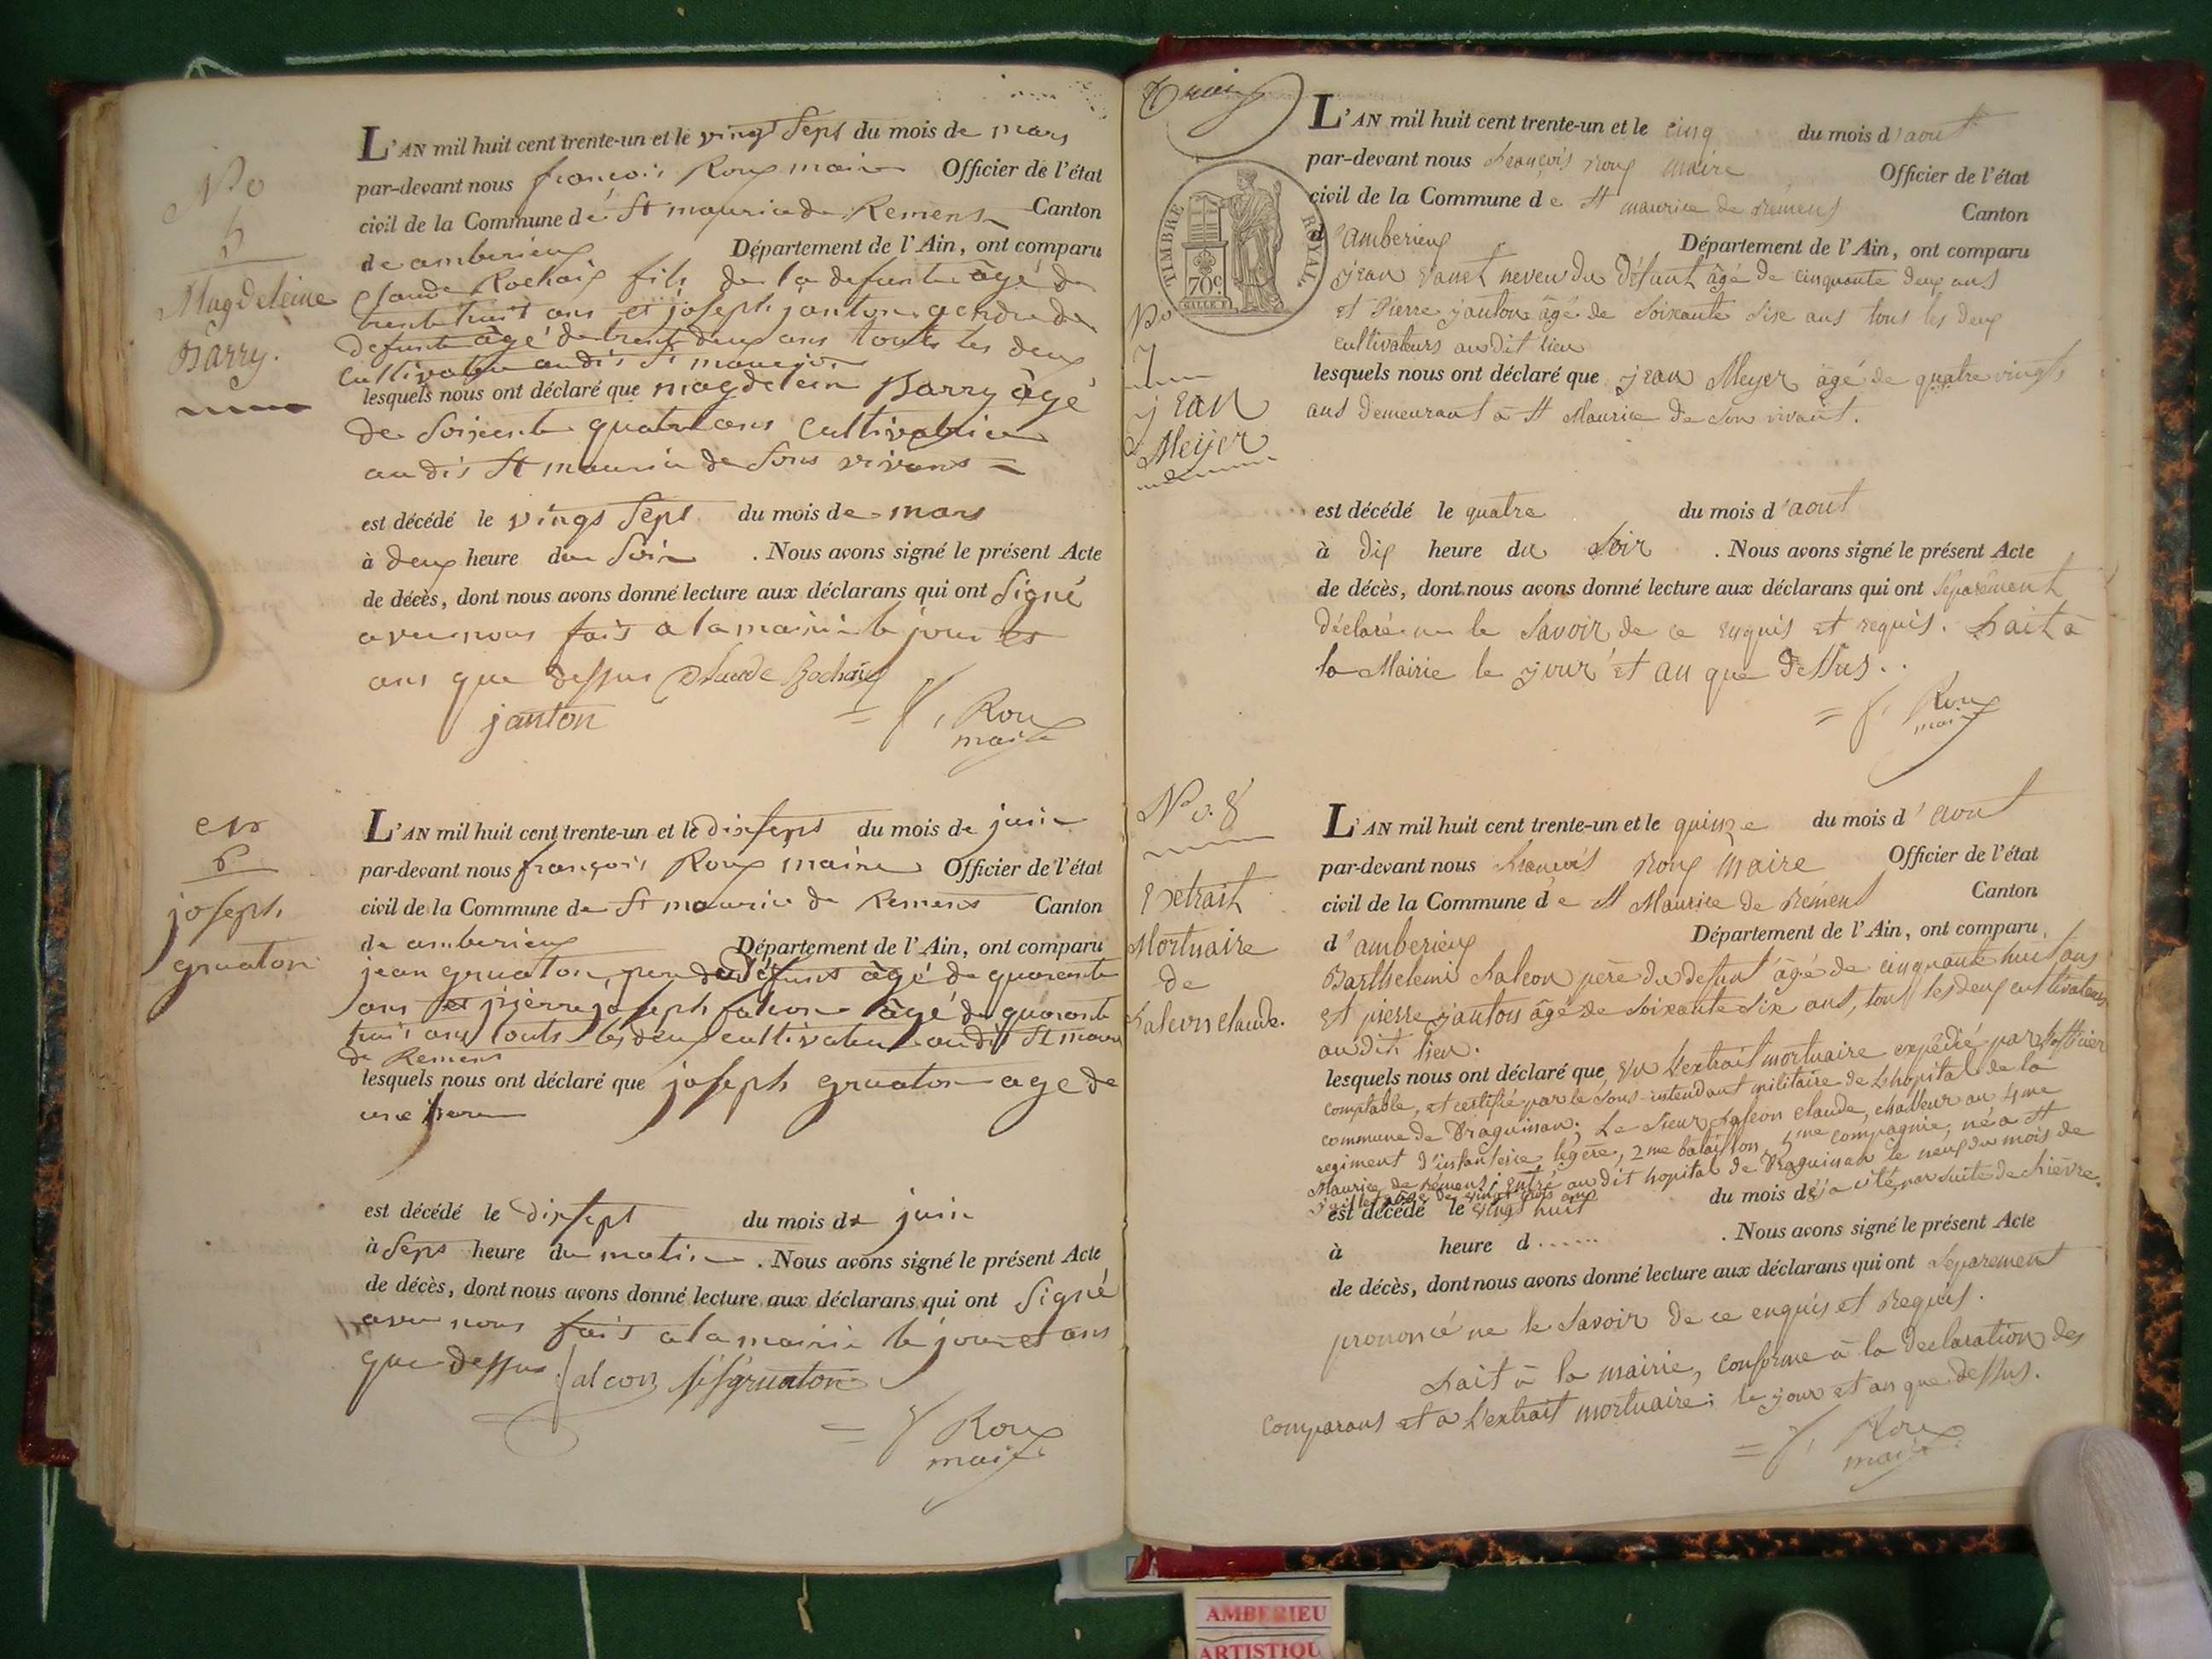 No
5
Magdeleine
Barry.
L'AN mil huit cent trente-un et le vingt Sept du mois de mars
par-devant nous françois Roux maire Officier de l'état
civil de la Commune de St maurice de Remens Canton
de amberieux Département de l'Ain, ont comparu
Claude Rochaix fils de la defunte âgé de
trente huit ans et joseph janton gendre de
defunte âgé de trente deux ans touts les deux
Cultivateur audit St maurice
lesquels nous ont déclaré que magdelein Barry âgé
de Soixente quatre ans Cultivatrice
audit St maurice de Sons vivans =
est décédé le vingt Sept du mois de mars
à deux heure du Soir . Nous avons signé le présent Acte
de décès, dont nous avons donné lecture aux déclarans qui ont Signé
avec nous fait a la mairie le jour et
ans que dessus Claude Rochaix
janton = f, Roux
maire
6
joseph
gruaton
L'AN mil huit cent trente-un et le dix sept du mois de juin
par-devant nous françois Roux maire Officier de l'état
civil de la Commune de St maurice de Remens Canton
de amberieux Département de l'Ain, ont comparu
jean gruaton, pere du défunt âgé de quarente
ans et pierre joseph falcon âgé de quarente
huit ans touts les deux cultivateur audit St maurice
de Remens
lesquels nous ont déclaré que joseph gruaton age de
une heure
est décédé le dix sept du mois de juin
à Sept heure du matin . Nous avons signé le présent Acte
de décès, dont nous avons donné lecture aux déclarans qui ont Signé
avec nous fait a la mairie le jour et ans
que dessus falcon gruaton
= f, Roux
maire
TIMBRE ROYAL
70c
No
7
jean
Meyer
L'AN mil huit cent trente-un et le cinq du mois d'aout
par-devant nous françois roux maire Officier de l'état
civil de la Commune de St maurice de remens Canton
d'amberieux Département de l'Ain, ont comparu
jean vanet neveu du défunt âgé de cinquante deux ans
et Pierre janton âgé de Soixante Six ans tous les deux
cultivateurs audit lieu
lesquels nous ont déclaré que jean Meyer âgé de quatre vingts
ans demeurant à St Maurice de Son vivant.
est décédé le quatre du mois d'aout
à dix heure du Soir . Nous avons signé le présent Acte
de décès, dont nous avons donné lecture aux déclarans qui ont Séparément
déclaré ne le Savoir de ce enquis et requis. Fait à
la Mairie le jour et an que dessus.
= f, Roux
maire
No. 8
Extrait
Mortuaire
de
falcon claude.
L'AN mil huit cent trente-un et le quinze du mois d'aout
par-devant nous francois roux maire Officier de l'état
civil de la Commune de St Maurice de rémens Canton
d'amberieux Département de l'Ain, ont comparu
Barthelemi falcon père du defunt âgé de cinquante huit ans
et pierre janton âgé de Soixante Six ans, tous les deux cultivateurs
audit lieu.
lesquels nous ont déclaré que Vu L'extrait mortuaire expédié par L'officier
comptable, et certifié par le Sous-intendant militaire de L'hopital de la
commune de Draguinan; Le Sieur falcon claude, chasseur au 4me
regiment d'infanterie légère, 2me bataillon, 5me compagnie, né à St
Maurice de rémens; entré audit hopital de Draguinan le neuf du mois de
juillet âgé de vingt trois ans
est décédé le vingt huit du mois déja cité, par Suite de fièvre.
à heure d...... . Nous avons signé le présent Acte
de décès, dont nous avons donné lecture aux déclarans qui ont Séparement
prononcé ne le Savoir de ce enquis et Requis.
Fait à la mairie, conforme à la declaration des
comparans et a L'extrait mortuaire; le jour et an que dessus.
= f, Roux
maire
AMBERIEU
ARTISTIQU